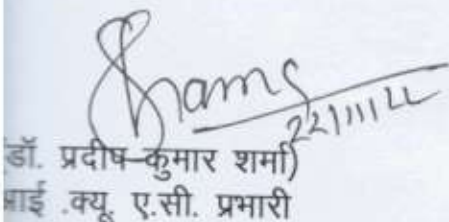 Shams
22/11/22
(डॉ. प्रदीप कुमार शर्मा)
आई .क्यू. ए.सी. प्रभारी